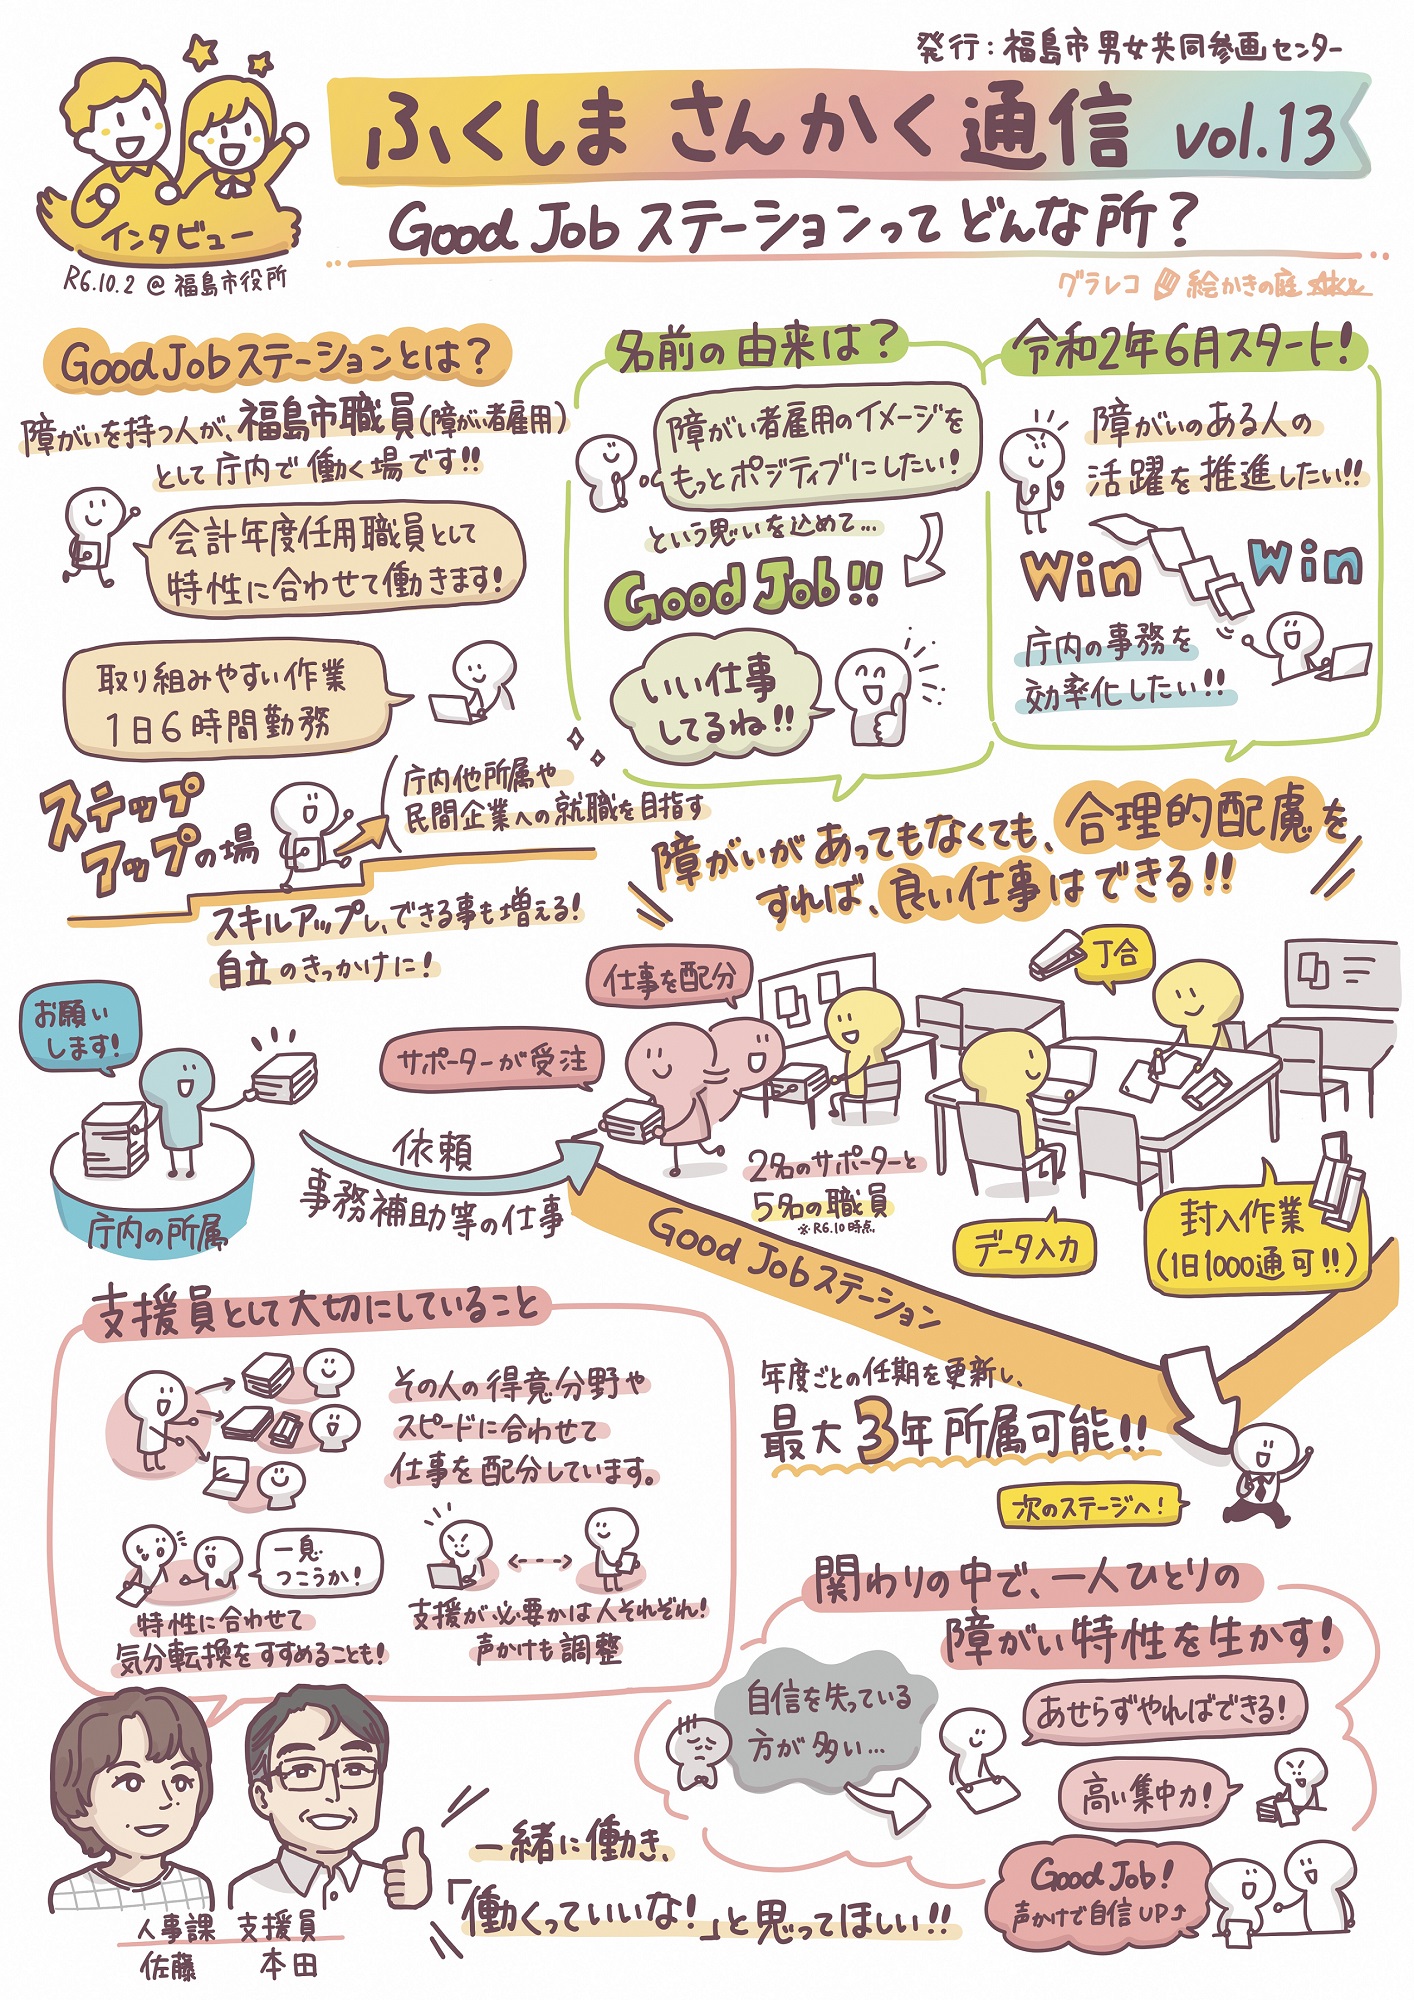 発行：福島市男女共同参画センター
ふくしま さんかく通信 vol.13
Good Job ステーションって どんな所？
インタビュー
R6.10.2 @ 福島市役所
グラレコ 絵かきの庭
Good Job ステーションとは？
障がいを持つ人が、福島市職員(障がい者雇用)
として庁内で働く場です!!
会計年度任用職員として
特性に合わせて働きます!
取り組みやすい作業
1日6時間勤務
ステップ
アップの場
庁内他所属や
民間企業への就職を目指す
スキルアップし、できる事も増える!
自立のきっかけに!
名前の由来は？
障がい者雇用のイメージを
もっとポジティブにしたい!
という思いを込めて…
Good Job!!
いい仕事
してるね!!
令和2年6月スタート!
障がいのある人の
活躍を推進したい!!
Win Win
庁内の事務を
効率化したい!!
障がいがあってもなくても、合理的配慮を
すれば、良い仕事はできる!!
お願い
します!
庁内の所属
依頼
事務補助等の仕事
サポーターが受注
仕事を配分
2名のサポーターと
5名の職員
※R6.10時点
丁合
データ入力
封入作業
(1日1000通可!!)
Good Job ステーション
年度ごとの任期を更新し、
最大3年所属可能!!
次のステージへ!
支援員として大切にしていること
その人の得意分野や
スピードに合わせて
仕事を配分しています。
一息
つこうか!
特性に合わせて
気分転換をすすめることも!
支援が必要かは人それぞれ!
声かけも調整
人事課 支援員
佐藤 本田
一緒に働き、
「働くっていいな!」と思ってほしい!!
関わりの中で、一人ひとりの
障がい特性を生かす!
自信を失っている
方が多い…
あせらずやればできる!
高い集中力!
Good Job!
声かけで自信UP↑